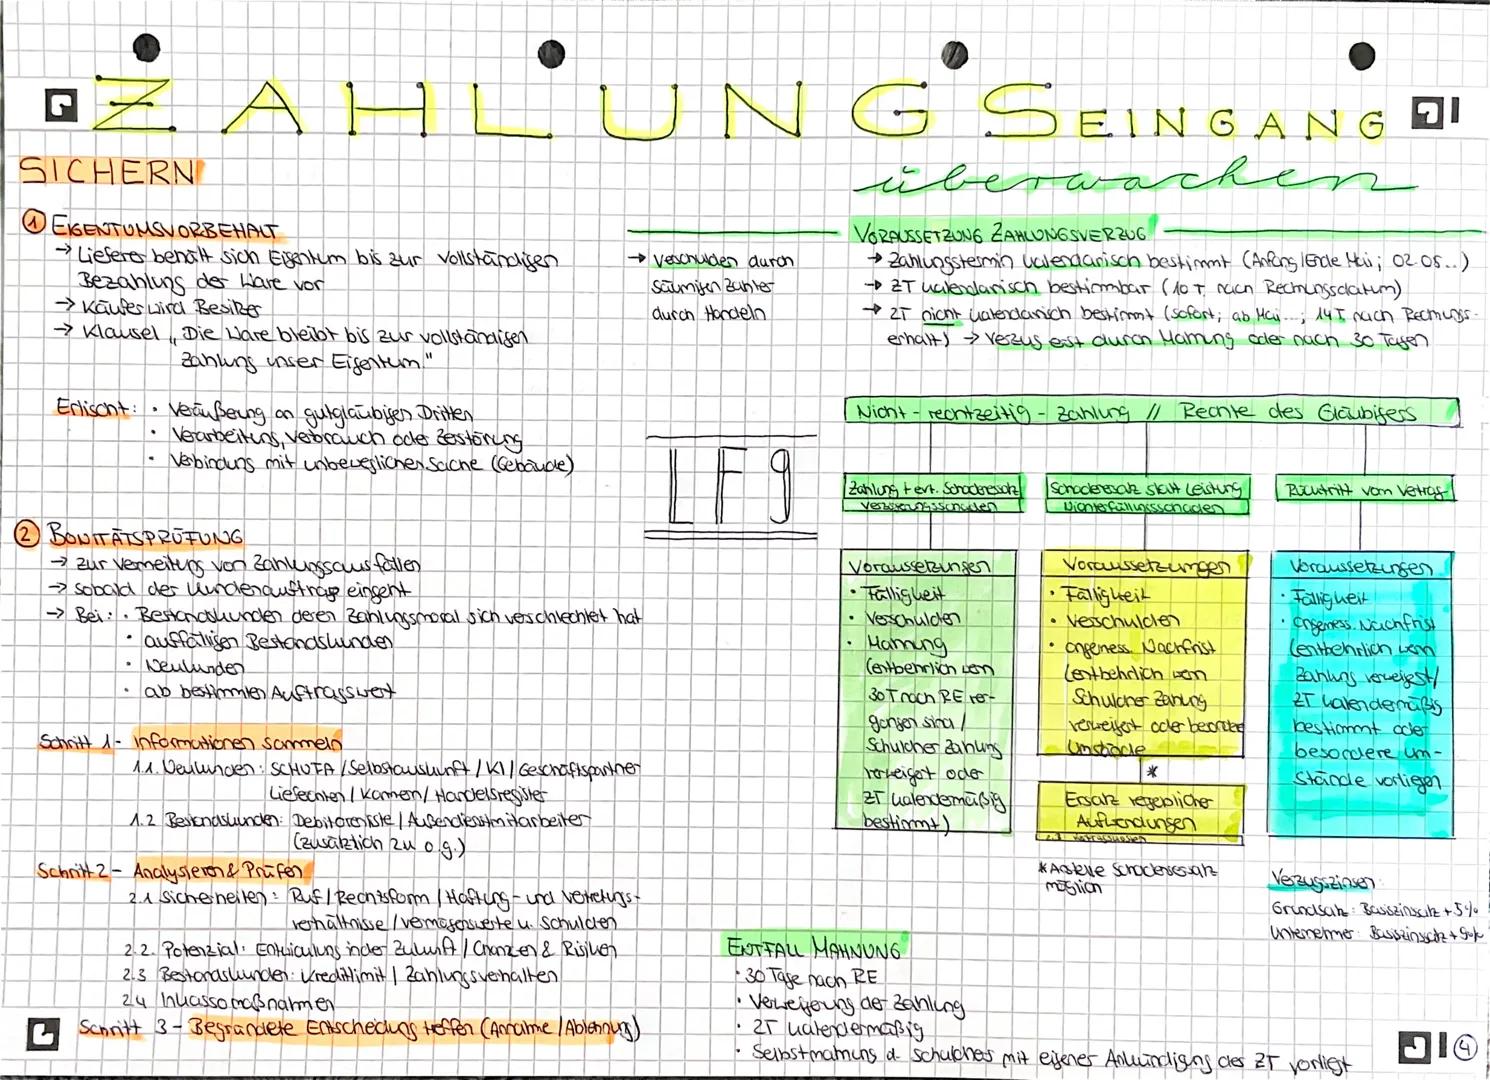 ZAHLUNGSEINGANG
SICHERN
überwachen
① EIGENTUMSVORBEHALT
→ Lieferer behält sich Eigentum bis zur vollständigen
Bezahlung der Ware vor
→ Käufer wird Besitzer
→ Klausel „Die Ware bleibt bis zur vollständigen
Zahlung unser Eigentum."
Erlischt: · Veräußerung an gutgläubigen Dritten
· Verarbeitung, Verbrauch oder Zerstörung
· Verbindung mit unbeweglicher Sache (Gebäude)
② BONITÄTSPRÜFUNG
→ zur Vermeidung von Zahlungsausfällen
→ sobald der Kundenauftrag eingeht
→ Bei: · Bestandskunden deren Zahlungsmoral sich verschlechtet hat
· auffälligen Bestandskunden
· Neukunden
· ab bestimmten Auftragswert
Schritt 1 - Informationen sammeln
1.1. Neukunden: SCHUFA / Selbstauskunft / KI / Geschäftspartner
Lieferanten / Kammern / Handelsregister
1.2 Bestandskunden: Debitorenliste / Außendienstmitarbeiter
(zusätzlich zu o.g.)
Schritt 2 - Analysieren & Prüfen
2.1 Sicherheiten: Ruf / Rechtsform / Haftung- und Vertretungs-
verhältnisse / Vermögenswerte u. Schulden
2.2. Potenzial: Entwicklung in der Zukunft / Chancen & Risiken
2.3 Bestandskunden: Kreditlimit / Zahlungsverhalten
2.4 Inkassomaßnahmen
Schritt 3 - Begründete Entscheidung treffen (Annahme / Ablehnung)
→ Verschulden durch
säumigen Zahler
durch Handeln
LF9
VORAUSSETZUNG ZAHLUNGSVERZUG
→ Zahlungstermin kalendarisch bestimmt (Anfang/Ende Mai; 02.05..)
→ ZT kalendarisch bestimmbar (10 T. nach Rechnungsdatum)
→ ZT nicht kalendarisch bestimmt (sofort; ab Mai...; 14 T nach Rechnungs-
erhalt) → Verzug erst durch Mahnung oder nach 30 Tagen
Nicht-rechtzeitig-Zahlung // Rechte des Gläubigers
Zahlung + evt. Schadensersatz
Verzögerungsschaden
Voraussetzungen
· Fälligkeit
· Verschulden
· Mahnung
(entbehrlich wenn
30 T nach RE ver-
gangen sind /
Schuldner Zahlung
verweigert oder
ZT kalendermäßig
bestimmt)
Schadensersatz statt Leistung
Nichterfüllungsschaden
Voraussetzungen
· Fälligkeit
· Verschulden
· angemess. Nachfrist
(entbehrlich wenn
Schuldner Zahlung
verweigert oder besondere
Umstände
*
Ersatz vergeblicher
Aufwendungen
* Anstelle Schadensersatz
möglich
Rücktritt vom Vertrag
Voraussetzungen
· Fälligkeit
· angemess. Nachfrist
(entbehrlich wenn
Zahlung verweigert /
ZT kalendermäßig
bestimmt oder
besondere Um-
stände vorliegen
Verzugszinsen:
Grundsatz: Basiszinsatz + 5%
Unternehmer: Basiszinsatz + 9%
ENTFALL MAHNUNG
· 30 Tage nach RE
· Verweigerung der Zahlung
· ZT kalendermäßig
· Selbstmahnung d. Schuldners mit eigener Ankündigung des ZT vorliegt
④